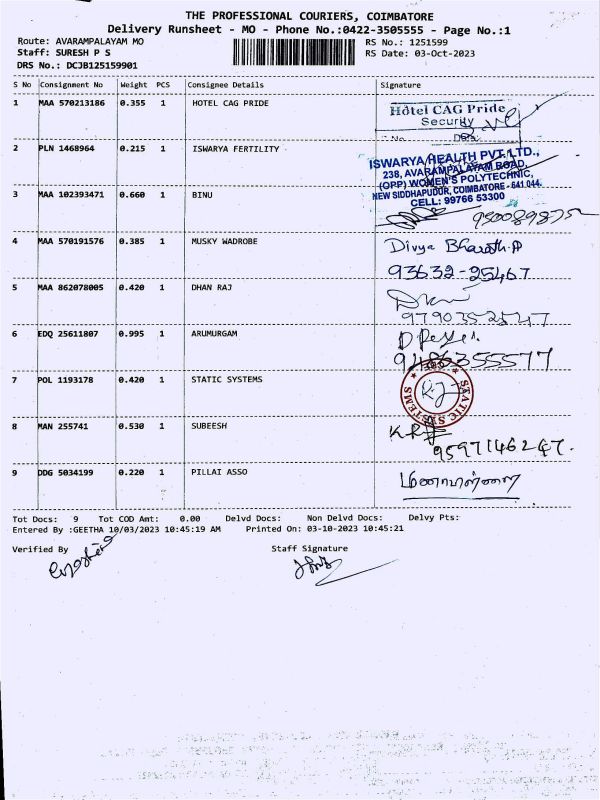 THE PROFESSIONAL COURIERS, COIMBATORE
Delivery Runsheet - MO - Phone No.:0422-3505555 - Page No.:1
Route: AVARAMPALAYAM MO
Staff: SURESH P S
DRS No.: DCJB125159901
RS No.: 1251599
RS Date: 03-Oct-2023
S No Consignment No Weight PCS Consignee Details Signature
1 MAA 570213186 0.355 1 HOTEL CAG PRIDE
Hotel CAG Pride
Security
2 PLN 1468964 0.215 1 ISWARYA FERTILITY
ISWARYA HEALTH PVT. LTD.,
238, AVARAMPALAYAM ROAD,
(OPP) WOMEN'S POLYTECHNIC,
NEW SIDDHAPUDUR, COIMBATORE - 641 044.
CELL: 99766 53300
3 MAA 102393471 0.660 1 BINU
4 MAA 570191576 0.385 1 MUSKY WADROBE
Divya Bharath.P
93632-25467
5 MAA 862078005 0.420 1 DHAN RAJ
9790352547
6 EDQ 25611807 0.995 1 ARUMURGAM
9486355577
7 POL 1193178 0.420 1 STATIC SYSTEMS
STATIC SYSTEMS
8 MAN 255741 0.530 1 SUBEESH
9597146247.
9 DDG 5034199 0.220 1 PILLAI ASSO
Tot Docs: 9 Tot COD Amt: 0.00 Delvd Docs: Non Delvd Docs: Delvy Pts:
Entered By :GEETHA 10/03/2023 10:45:19 AM Printed On: 03-10-2023 10:45:21
Verified By Staff Signature